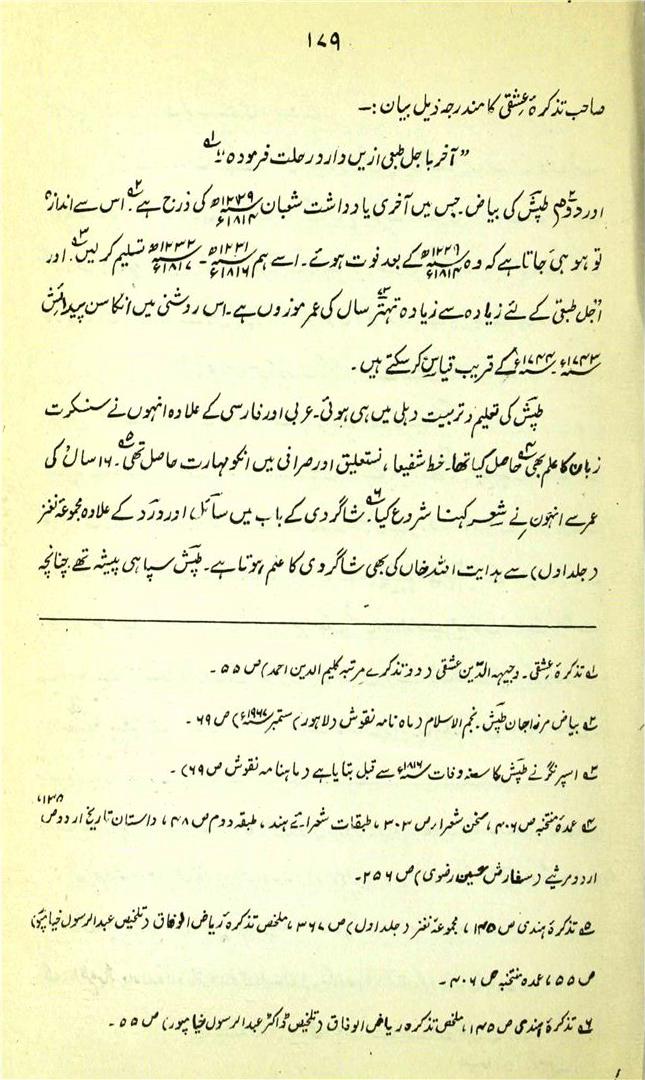 ۱۷۹
صاحب تذکرۂ عشقی کا مندرجہ ذیل بیان :۔
”آخر باجل طبعی ازیں دار در رحلت فرمودہ“ ۱؎
اور دوم ۲ طپش کی بیاض۔ جس میں آخری یادداشت شعبان ۱۲۲۹ھ ۱۸۱۴ء کی درج ہے ۲؎۔ اس سے اندازہ
تو ہو ہی جاتا ہے کہ وہ ۱۲۲۹ھ ۱۸۱۴ء کے بعد فوت ہوئے۔ اسے ہم ۱۲۳۱ھ ۱۸۱۶ء ۔ ۱۲۳۲ھ ۱۸۱۷ء تسلیم کر لیں ۳؎۔ اور
اجل طبعی کے لئے زیادہ سے زیادہ تہتر ۷۳ سال کی عمر موزوں ہے۔ اس روشنی میں انکا سن پیدائش
۱۷۴۳ء۔ ۱۷۴۴ء کے قریب قیاس کر سکتے ہیں۔
طپش کی تعلیم و تربیت دہلی میں ہی ہوئی۔ عربی اور فارسی کے علاوہ انہوں نے سنکرت
زبان کا علم بھی ۴؎ حاصل کیا تھا۔ خط شفیعا، نستعلیق اور صرافی میں انکو مہارت حاصل تھی ۵؎۔ ۱۶ سال کی
عمر سے انہوں نے شعر کہنا شروع کیا ۶؎۔ شاگردی کے باب میں سائل اور درد کے علاوہ مجموعۂ نغز
(جلد اول) سے ہدایت اللہ خاں کی بھی شاگردی کا علم ہوتا ہے۔ طپش سپاہی پیشہ تھے چنانچہ
۱؎ تذکرۂ عشقی۔ وجیہہ الدین عشقی (دو تذکرے مرتبہ کلیم الدین احمد) ص ۵۵۔
۲؎ بیاض مرزا جان طپش۔ نجم الاسلام (ماہ نامہ نقوش لاہور) ستمبر ۱۹۶۷ء) ص ۶۹۔
۳؎ اسپرنگر نے طپش کا سنہ وفات ۱۸۱۶ء سے قبل بتایا ہے (ماہنامہ نقوش ص ۶۹)۔
۴؎ عمدۂ منتخبہ ص ۴۰۶، سخن شعرا ص ۳۰۳، طبقات شعرائے ہند، طبقہ دوم ص ۴۸، داستان تاریخ اردو ص ۱۳۵،
اردو مرثیے (سفارش حسین رضوی) ص ۲۵۶۔
۵؎ تذکرۂ ہندی ص ۱۴۵، مجموعہ نغز (جلد اول) ص ۳۶۷، ملخص تذکرۂ ریاض الوفاق (تلخیص عبدالرسول خیامپور)
ص ۵۵، عمدہ منتخبہ ص ۴۰۶۔
۶؎ تذکرۂ ہندی ص ۱۴۵، ملخص تذکرہ ریاض الوفاق (تلخیص ڈاکٹر عبدالرسول خیامپور) ص ۵۵۔